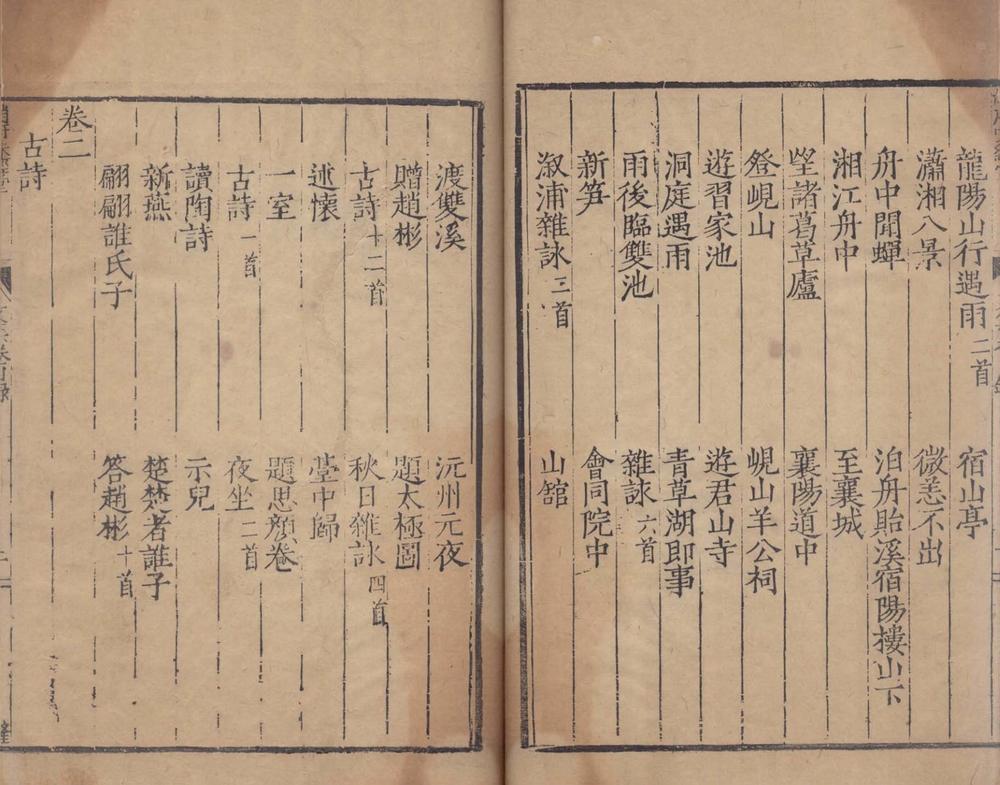 龍陽山行遇雨二首 宿山亭
瀟湘八景 微恙不出
舟中聞蟬 泊舟貽溪宿陽摟山下
湘江舟中 至襄城
朢諸葛草廬 襄陽道中
登峴山 峴山羊公祠
遊習家池 遊君山寺
洞庭遇雨 青草湖即事
雨後臨雙池 雜詠六首
新笋 會同院中
溆浦雜詠三首 山舘
渡雙溪 沅州元夜
贈趙彬 題太極圖
古詩十二首 秋日雜詠四首
述懷 臺中歸
一室 題思顏卷
古詩一首 夜坐二首
讀陶詩 示兒
新燕 楚楚者誰子
翩翩誰氏子 答趙彬十首
卷二
古詩